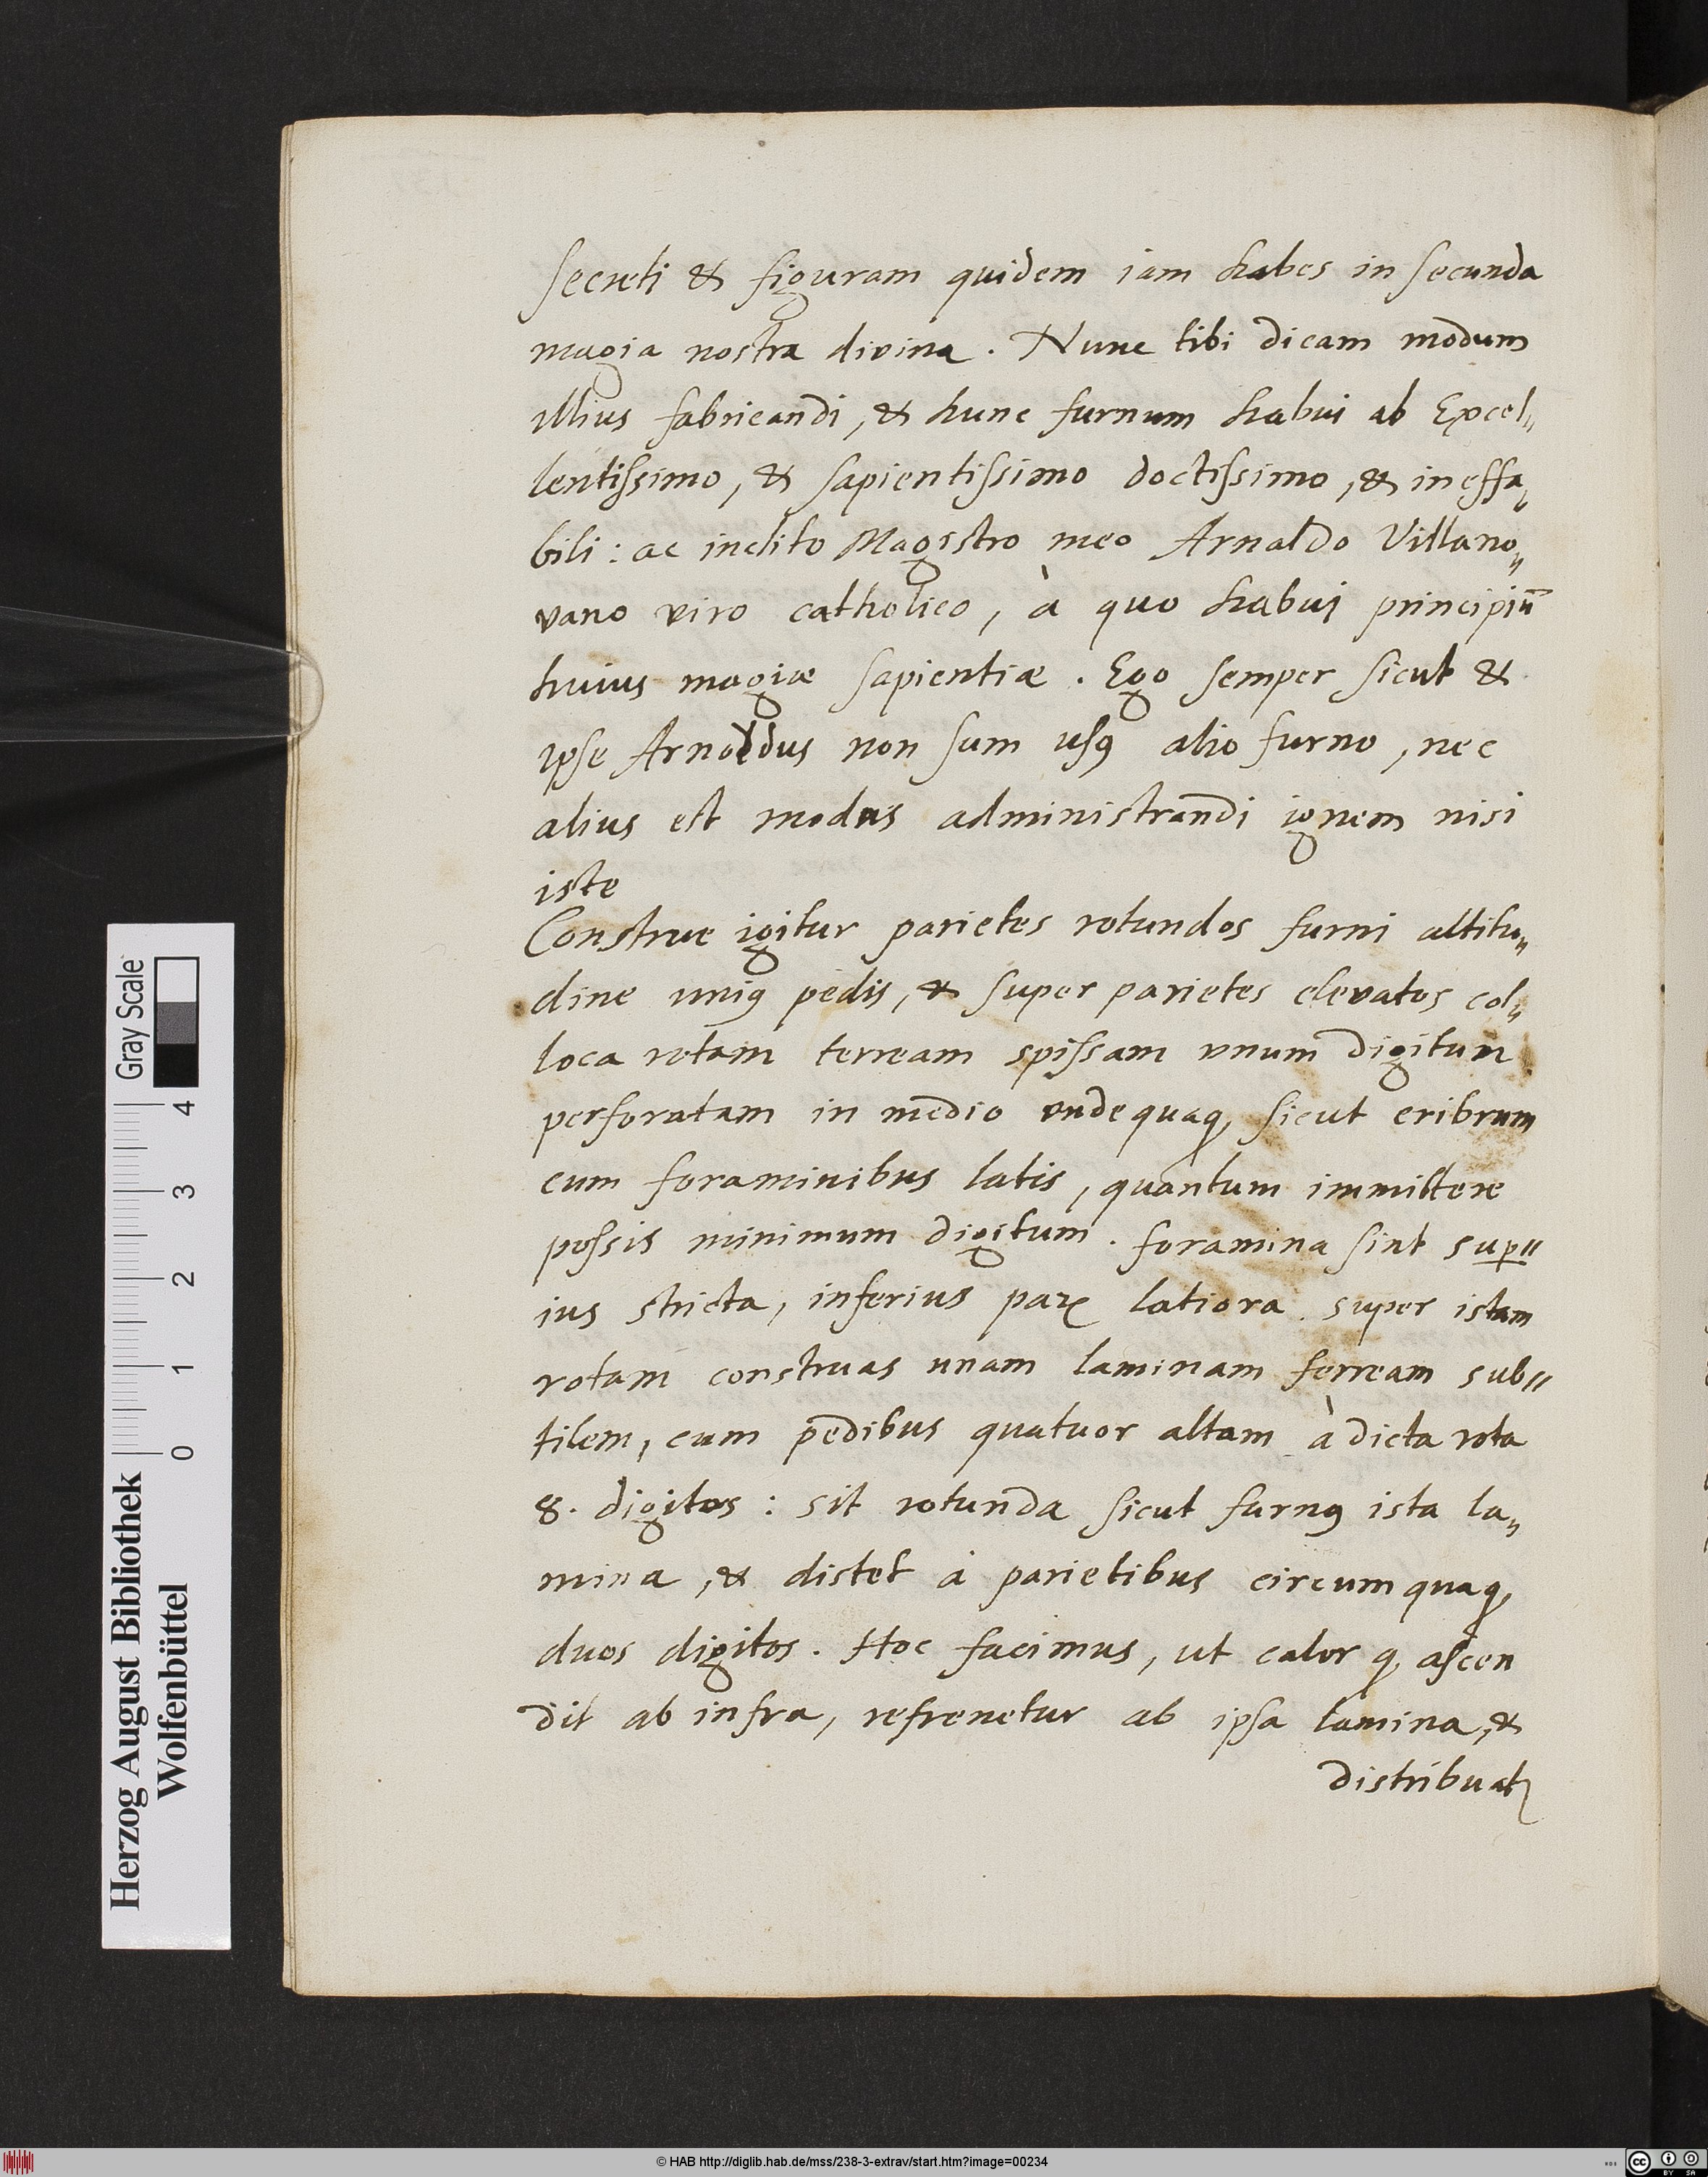 secreti & figuram quidem iam habes in secunda
magia nostra divina. Nunc tibi dicam modum
illius fabricandi, & hunc furnum habui ab Excel„
lentissimo, & sapientissimo doctissimo, & ineffa„
bili: ac inclito Magistro meo Arnaldo Villano„
vano viro catholico, à quo habui principiū
huius magiæ sapientiæ. Ego semper sicut &
ipse Arnoldus non sum usꝰ alio furno, nec
alius est modus administrandi ignem nisi
iste
Construe igitur parietes rotundos furni altitu„
dine uniꝰ pedis, & super parietes elevatos col„
loca rotam terream spissam vnum digitum
perforatam in medio vndequaqꝫ sicut cribrum
cum foraminibus latis, quantum immittere
possis minimum digitum. foramina sint suꝑ„
ius stricta, inferius parꝫ latiora. super istam
rotam construas unam laminam ferream sub„
tilem, cum pedibus quatuor altam à dicta rota
8. digitos: sit rotunda sicut furnꝰ ista la„
mina, & distet à parietibus circumquaqꝫ
duos digitos. Hoc facimus, ut calor qꝫ ascen
dit ab infra, refrenetur ab ipsa lamina, &
distribuatꝛ
Herzog August Bibliothek
Wolfenbüttel
0 1 2 3 4
Gray Scale
© HAB http://diglib.hab.de/mss/238-3-extrav/start.htm?image=00234
cc BY SA